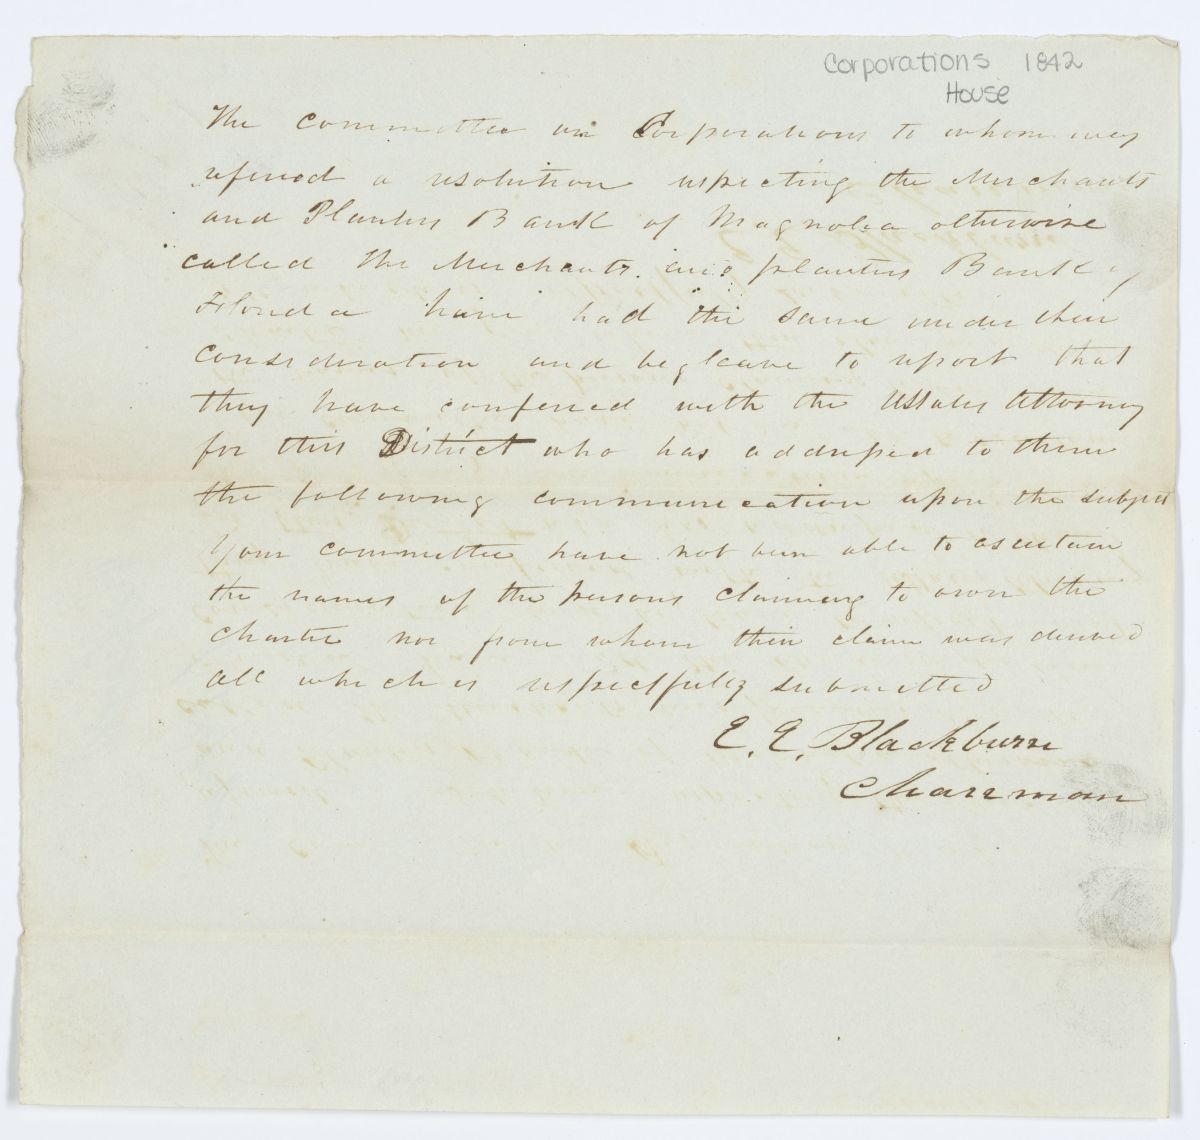 Corporations 1842
House
The committee on Corporations to whom was
refered a resolution respecting the Merchants
and Planters Bank of Magnolia otherwise
called The Merchants and planters Bank of
Florida have had the same under their
consideration and beg leave to report that
they have confered with the US States Attorney
for this District who has addressed to them
the following communication upon the subject
Your committee have not been able to ascertain
the names of the persons claiming to own the
Charter nor from whom their claim was derived
all which is respectfully submitted
E. E. Blackburn
Chairman